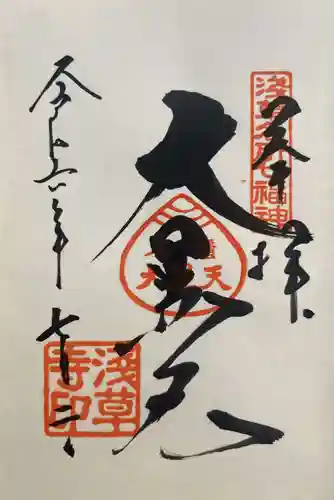 奉拝
浅草名所七福神
大黒天
令和六年七月二日
淺草寺印